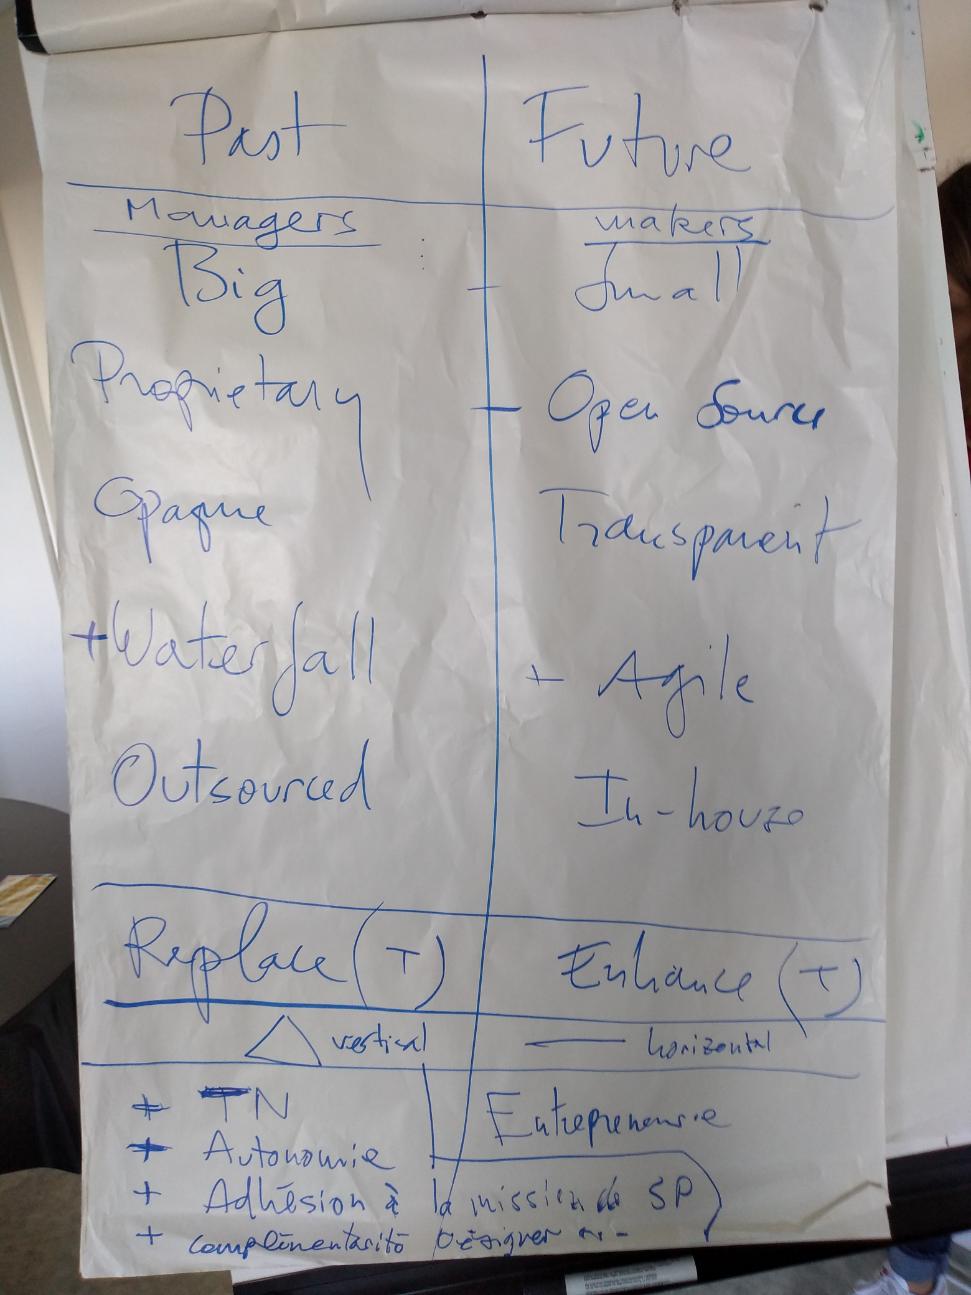 Past Future
Managers makers
Big - Small
Proprietary - Open Source
Opaque Transparent
+ Waterfall + Agile
Outsourced In-house
Replace (T) Enhance (T)
△ vertical — horizontal
+ TN Entrepreneurie
+ Autonomie
+ Adhésion à la mission de SP
+ complémentarité Désigner